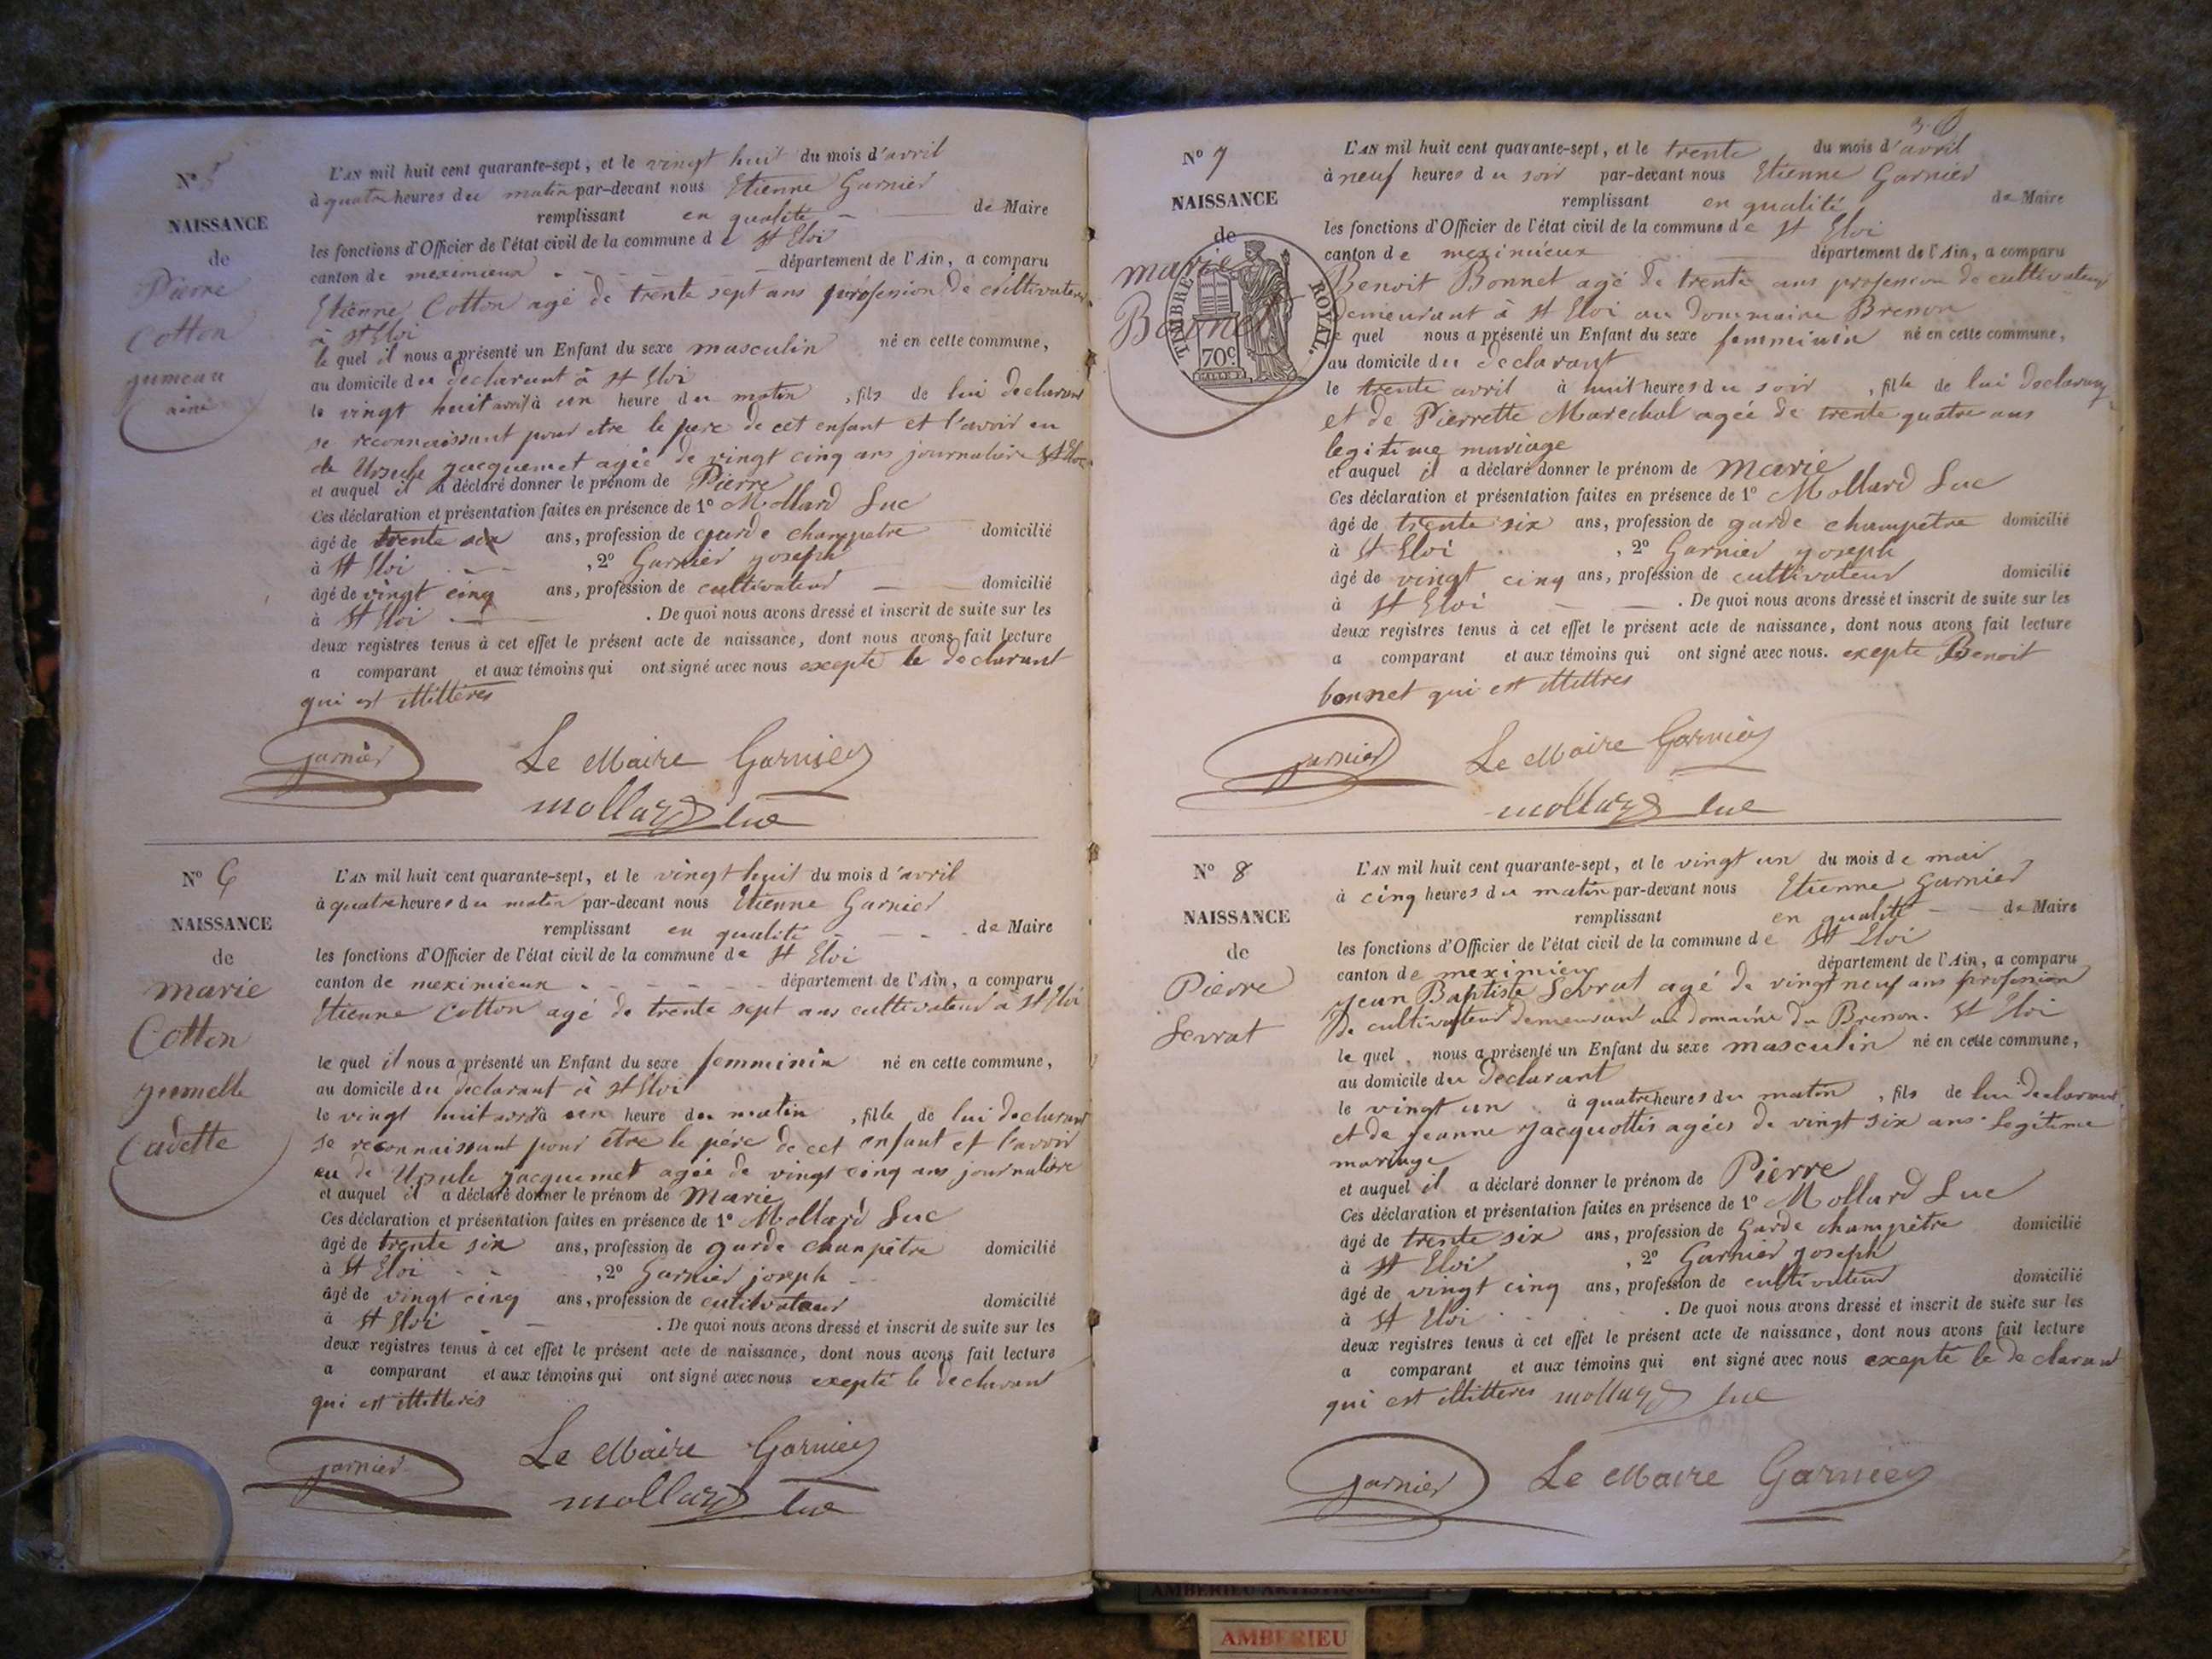 N° 5
NAISSANCE
de
Pierre
Cotton
jumeau
ainé
L'AN mil huit cent quarante-sept, et le vingt huit du mois d'avril
à quatre heures du matin par-devant nous Etienne Garnier
remplissant en qualité de Maire
les fonctions d'Officier de l'état civil de la commune de St Eloi
canton de meximieux département de l'Ain, a comparu
Etienne Cotton agé de trente sept ans profession de cultivateur
à St Eloi
le quel il nous a présenté un Enfant du sexe masculin né en cette commune,
au domicile du declarant à St Eloi
le vingt huit avril à un heure du matin, fils de lui declarant
se reconnaissant pour etre le pere de cet enfant et l'avoir eu
de Ursule jacquemet agée de vingt cinq ans journalière St Eloi
et auquel il a déclaré donner le prénom de Pierre
Ces déclaration et présentation faites en présence de 1° Mollard Luc
âgé de trente six ans, profession de garde champetre domicilié
à St Eloi, 2° Garnier joseph
âgé de vingt cinq ans, profession de cultivateur domicilié
à St Eloi. De quoi nous avons dressé et inscrit de suite sur les
deux registres tenus à cet effet le présent acte de naissance, dont nous avons fait lecture
a comparant et aux témoins qui ont signé avec nous excepté le declarant
qui est illitteres
garnier Le Maire Garnier
mollard luc
N° 6
NAISSANCE
de
marie
Cotton
jumelle
Cadette
L'AN mil huit cent quarante-sept, et le vingt huit du mois d'avril
à quatre heures du matin par-devant nous Etienne Garnier
remplissant en qualité de Maire
les fonctions d'Officier de l'état civil de la commune de St Eloi
canton de meximieux département de l'Ain, a comparu
Etienne Cotton agé de trente sept ans cultivateur à St Eloi
le quel il nous a présenté un Enfant du sexe femminin né en cette commune,
au domicile du declarant à St Eloi
le vingt huit avril à un heure du matin, fille de lui declarant
se reconnaissant pour être le pére de cet enfant et l'avoir
eu de Ursule jacquemet agée de vingt cinq ans journalière
et auquel il a déclaré donner le prénom de Marie
Ces déclaration et présentation faites en présence de 1° Mollard Luc
âgé de trente six ans, profession de garde champètre domicilié
à St Eloi, 2° Garnier joseph
âgé de vingt cinq ans, profession de cultivateur domicilié
à St Eloi. De quoi nous avons dressé et inscrit de suite sur les
deux registres tenus à cet effet le présent acte de naissance, dont nous avons fait lecture
a comparant et aux témoins qui ont signé avec nous exepté le declarant
qui est illitteres
garnier Le Maire Garnier
mollard luc
N° 7
NAISSANCE
de
marie
Bonnet
TIMBRE ROYAL.
70c
L'AN mil huit cent quarante-sept, et le trente du mois d'avril
à neuf heures du soir par-devant nous Etienne Garnier
remplissant en qualité de Maire
les fonctions d'Officier de l'état civil de la commune de St Eloi
canton de meximieux département de l'Ain, a comparu
Benoit Bonnet agé de trente ans profession de cultivateur
demeurant à St Eloi au dommaine Brenon
le quel nous a présenté un Enfant du sexe femminin né en cette commune,
au domicile du declarant
le trente avril à huit heures du soir, fille de lui declarant
et de Pierrette Marechal agée de trente quatre ans
legitime mariage
et auquel il a déclaré donner le prénom de Marie
Ces déclaration et présentation faites en présence de 1° Mollard Luc
âgé de trente six ans, profession de garde champètre domicilié
à St Eloi, 2° Garnier joseph
âgé de vingt cinq ans, profession de cultivateur domicilié
à St Eloi. De quoi nous avons dressé et inscrit de suite sur les
deux registres tenus à cet effet le présent acte de naissance, dont nous avons fait lecture
a comparant et aux témoins qui ont signé avec nous. exepte Benoit
bonnet qui est illittres
garnier Le Maire Garnier
mollard luc
N° 8
NAISSANCE
de
Pierre
Sevrat
L'AN mil huit cent quarante-sept, et le vingt un du mois de mai
à cinq heures du matin par-devant nous Etienne Garnier
remplissant en qualité de Maire
les fonctions d'Officier de l'état civil de la commune de St Eloi
canton de meximieux département de l'Ain, a comparu
jean Baptiste Sevrat agé de vingt neuf ans profession
de cultivateur demeurant au domaine du Brenon. St Eloi
le quel nous a présenté un Enfant du sexe masculin né en cette commune,
au domicile du declarant
le vingt un à quatre heures du matin, fils de lui declarant
et de jeanne jacquottis agées de vingt six ans legitime
mariage
et auquel il a déclaré donner le prénom de Pierre
Ces déclaration et présentation faites en présence de 1° Mollard Luc
âgé de trente six ans, profession de Garde champètre domicilié
à St Eloi, 2° Garnier joseph
âgé de vingt cinq ans, profession de cultivateur domicilié
à St Eloi. De quoi nous avons dressé et inscrit de suite sur les
deux registres tenus à cet effet le présent acte de naissance, dont nous avons fait lecture
a comparant et aux témoins qui ont signé avec nous exepté le declarant
qui est illitteres mollard luc
garnier Le Maire Garnier
AMBERIEU ARTISTIQUE
AMBERIEU